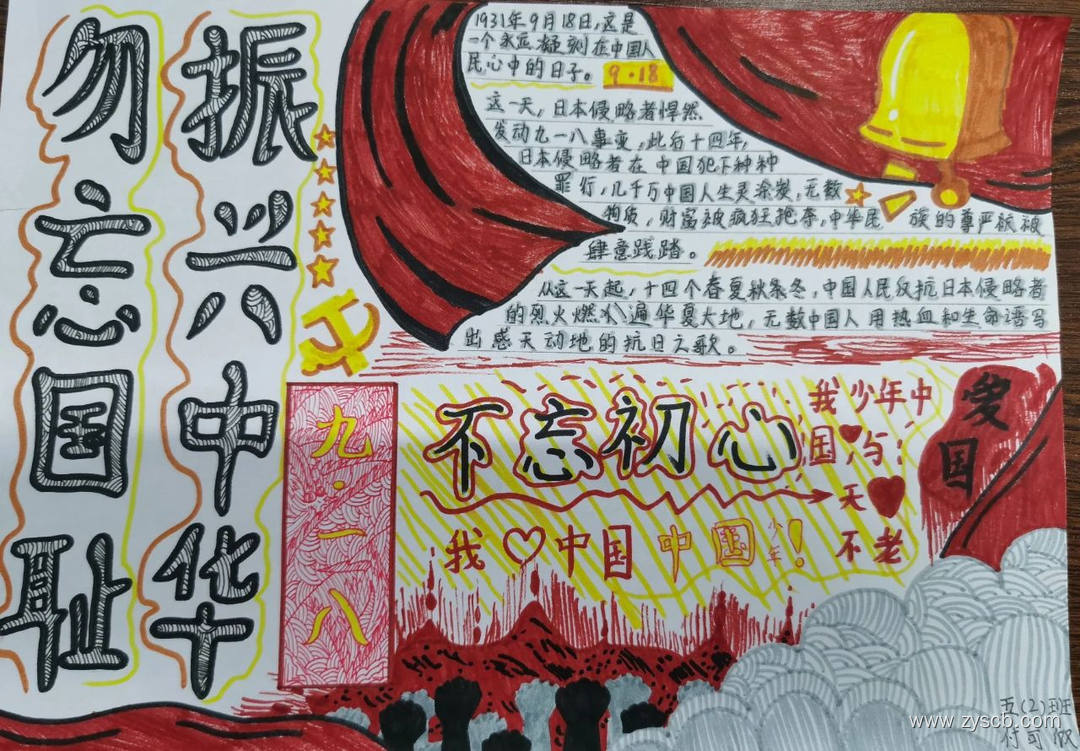 勿忘国耻
振兴中华
1931年9月18日,这是
一个永远凝刻在中国人
民心中的日子。
9·18
这一天,日本侵略者悍然
发动九一八事变,此后十四年,
日本侵略者在中国犯下种种
罪行,几千万中国人生灵涂炭,无数
财富被疯狂抢夺,中华民族的尊严被
肆意践踏。
从这一天起,十四个春夏秋冬,中国人民反抗日本侵略者
的烈火燃遍华夏大地,无数中国人用热血和生命谱写
出感天动地的抗日之歌。
九·一八
不忘初心
我少年中
国,与:
天
不老
我中国中国少年!
爱国
五(2)班
www.zyscb.com